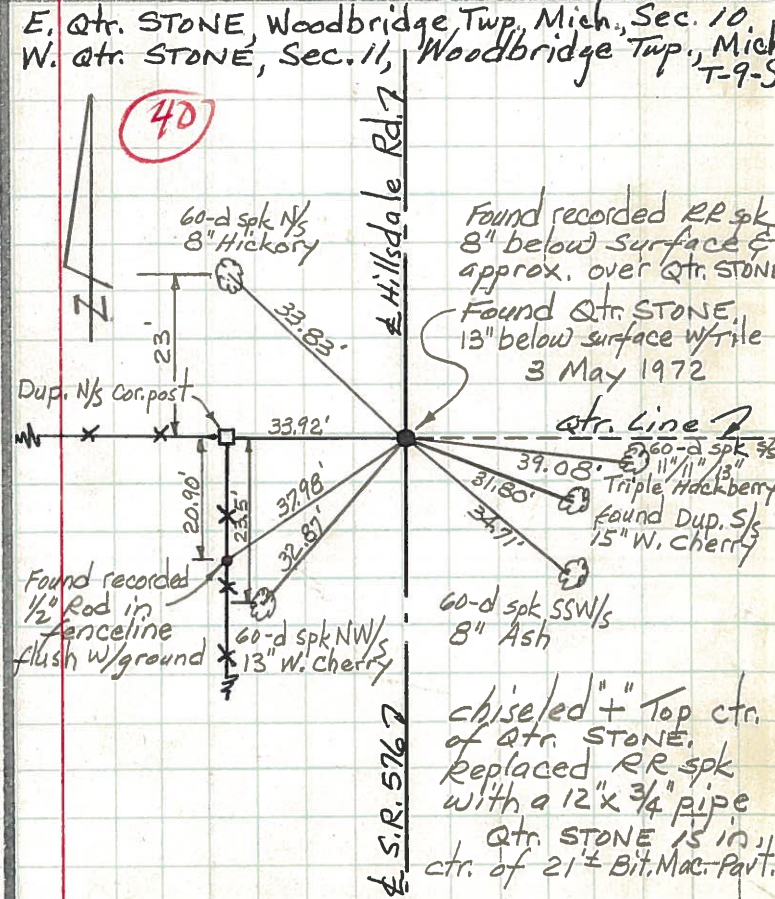 E. Qtr. STONE, Woodbridge Twp. Mich., Sec. 10
W. Qtr. STONE, Sec. 11, Woodbridge Twp., Mich
T-9-S
40
℄ Hillsdale Rd.
N
60-d spk N/S
8" Hickory
33.83'
23'
Found recorded RR spk
8" below Surface &
approx. over Qtr. STONE
Found Qtr. STONE.
13" below surface W/Tile
3 May 1972
Dup. N/S Cor. post
33.92'
Qtr. Line
60-d spk S/S
11"/11"/13"
Triple Hackberry
39.08'
31.80'
34.71'
found Dup. S/S
15" W. Cherry
20.90'
23.5'
37.98'
32.87'
Found recorded
1/2" Rod in
fenceline
flush w/ground
60-d spk NW/S
13" W. Cherry
60-d spk SSW/S
8" Ash
℄ S.R. 576
chiseled "+" Top ctr.
of Qtr. STONE.
Replaced RR spk
with a 12" x 3/4" pipe
Qtr. STONE is in
ctr. of 21'± Bit. Mac. Pavt.